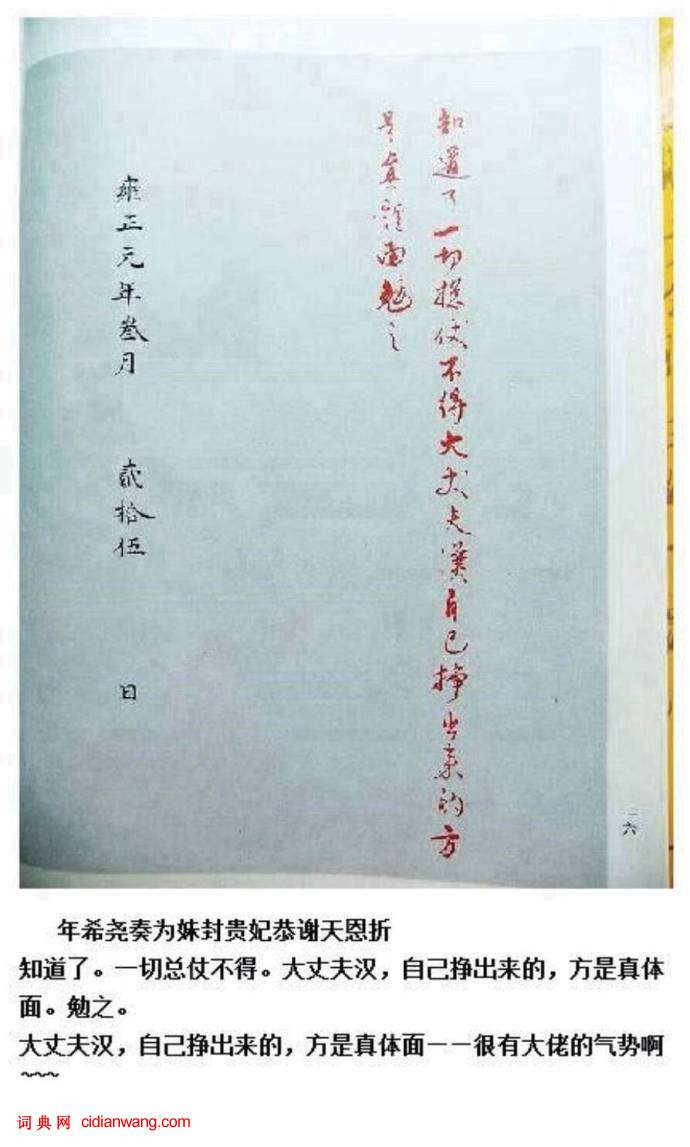 知道了一切摠仗不得大丈夫漢自己掙出来的方
是真體面勉之
雍正元年叁月 貳拾伍 日
一六
年希尧奏为妹封贵妃恭谢天恩折
知道了。一切总仗不得。大丈夫汉，自己挣出来的，方是真体
面。勉之。
大丈夫汉，自己挣出来的，方是真体面——很有大佬的气势啊
~~~
词典网 cidianwang.com